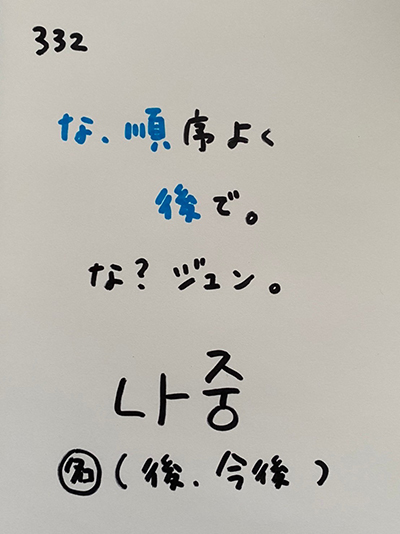 332
な、順序よく
後で。
な？ジュン。
나중
名(後、今後)